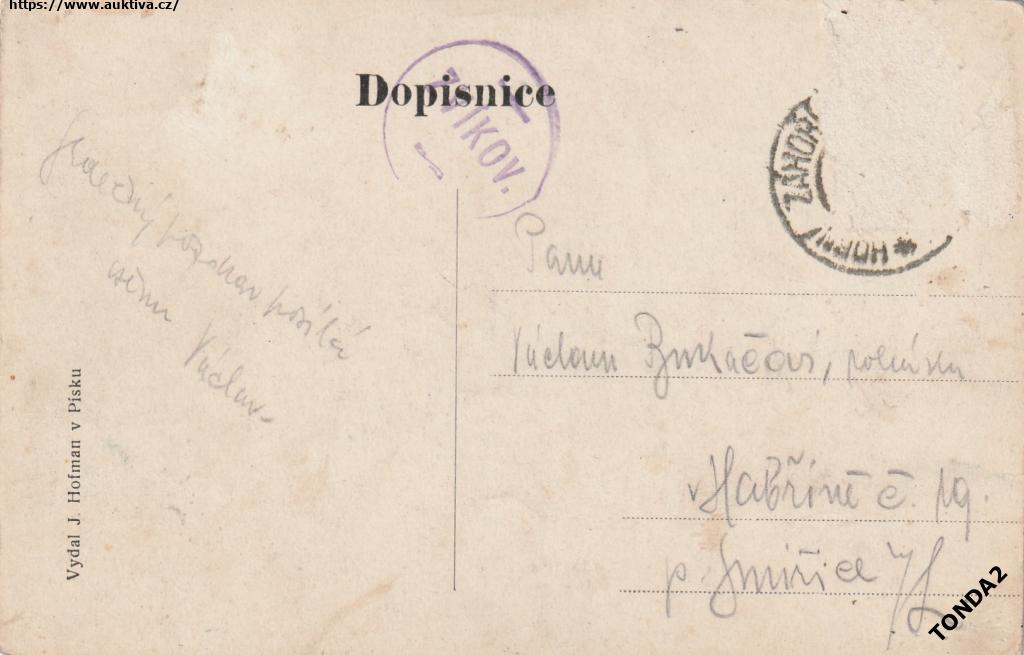 https://www.auktiva.cz/
Dopisnice
ZVÍKOV.
HORNÍ ZÁHOŘ
Srdečný pozdrav posílá
všem Václav
Panu
Václavu Bukačovi, rolníku
v Habřině č. 19.
p. Smiřice n/L
Vydal J. Hofman v Písku
TONDA2